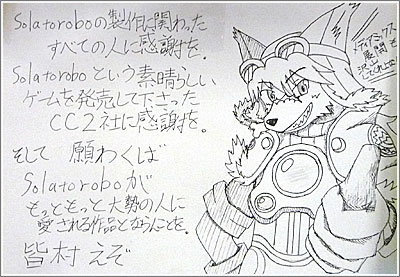 Solatoroboの製作に関わった
すべての人に感謝を。
Solatoroboという素晴らしい
ゲームを発売して下さった
CC2社に感謝を。
そして 願わくば
Solatoroboが
もっともっと大勢の人に
愛される作品とならんことを。
皆村 えぞ
メディアミックス
展開も